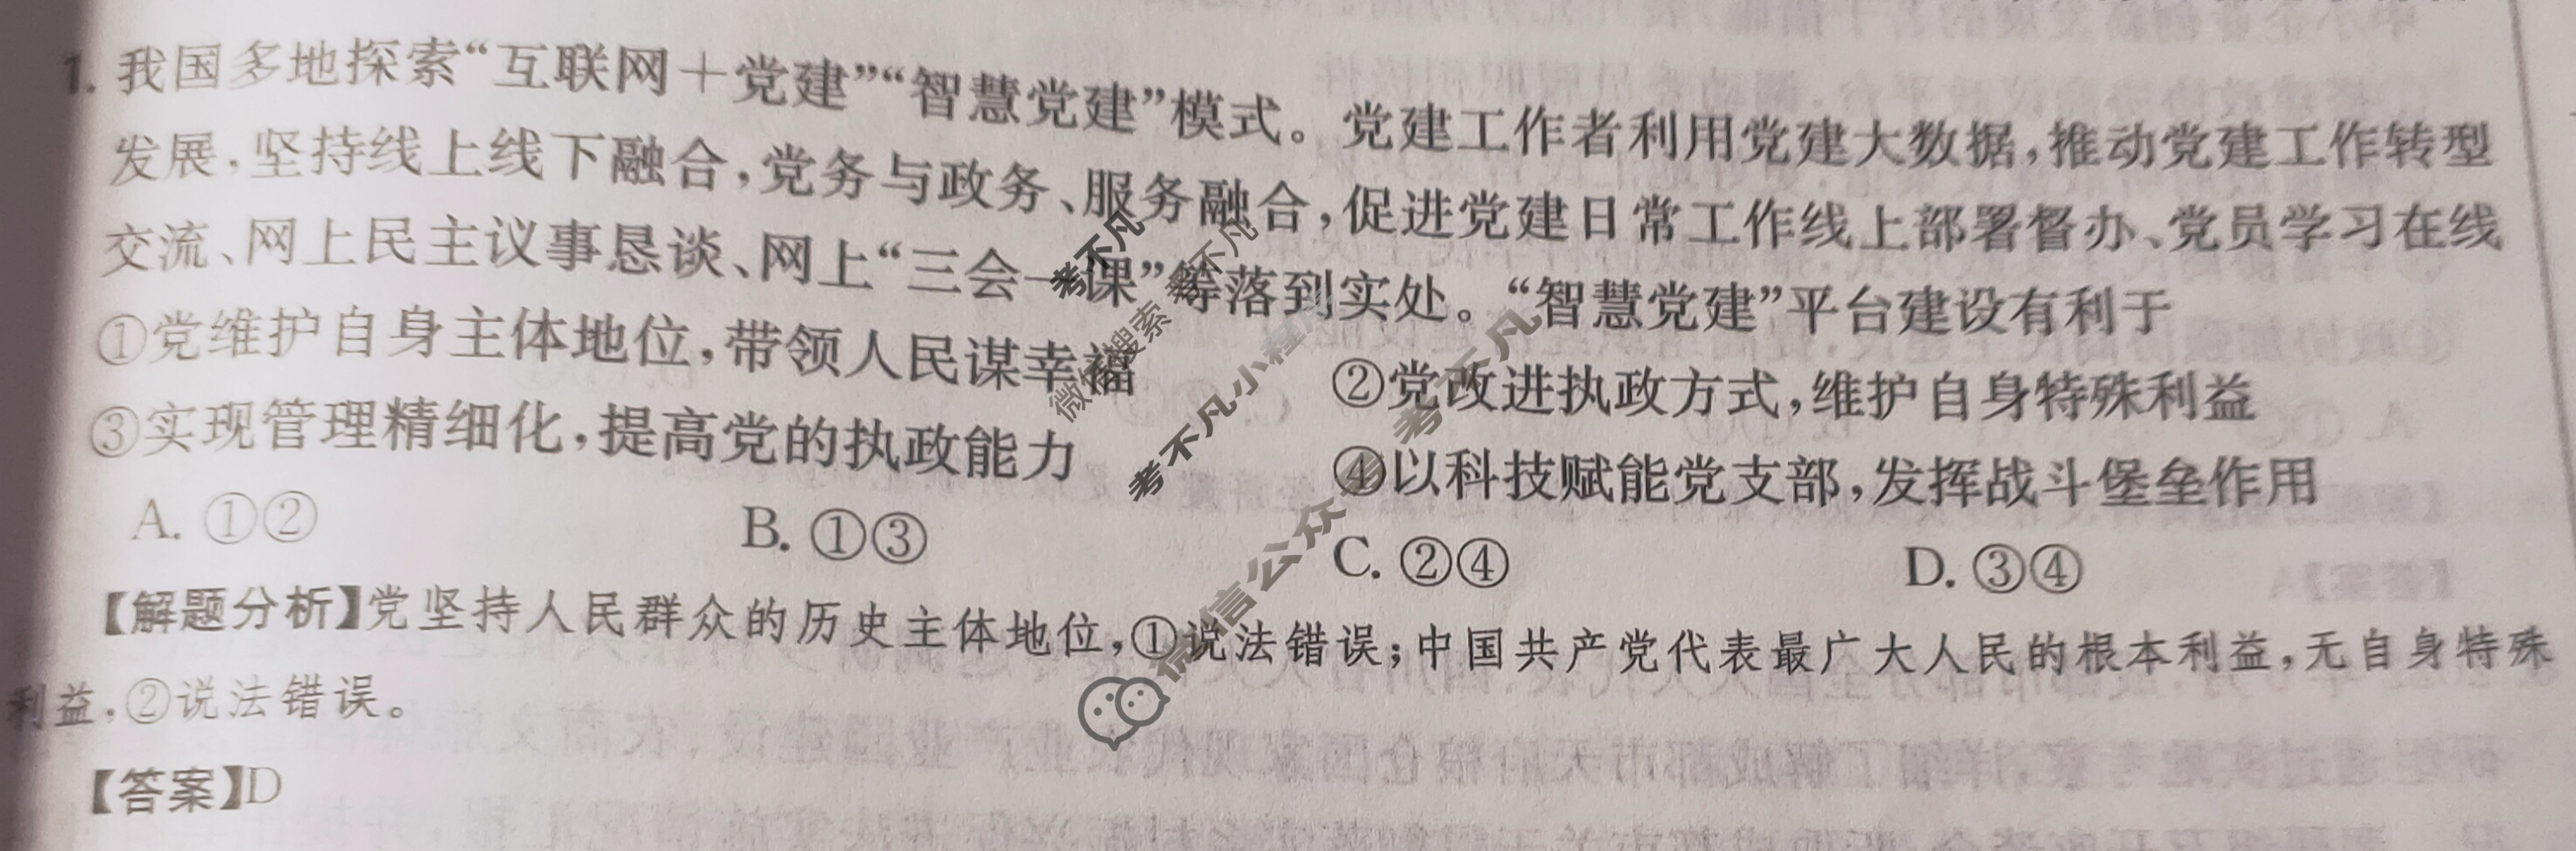 1. 我国多地探索“互联网＋党建”“智慧党建”模式。党建工作者利用党建大数据,推动党建工作转型
发展,坚持线上线下融合,党务与政务、服务融合,促进党建日常工作线上部署督办、党员学习在线
交流、网上民主议事恳谈、网上“三会一课”等落到实处。“智慧党建”平台建设有利于
①党维护自身主体地位,带领人民谋幸福 ②党改进执政方式,维护自身特殊利益
③实现管理精细化,提高党的执政能力 ④以科技赋能党支部,发挥战斗堡垒作用
A. ①② B. ①③ C. ②④ D. ③④
【解题分析】党坚持人民群众的历史主体地位,①说法错误;中国共产党代表最广大人民的根本利益,无自身特殊
利益,②说法错误。
【答案】D
考不凡
微信搜索 考不凡
考不凡小程序
微信公众 考不凡